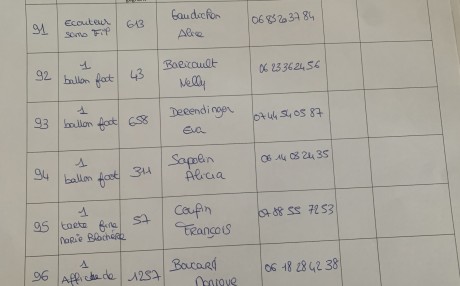 91 Ecouteur sans Fil 613 Gaudichon Alice 06 85 20 37 84
92 1 ballon foot 43 Boericault Nelly 06 23 36 24 56
93 1 ballon foot 658 Derendinger Eva 07 44 54 05 87
94 1 ballon foot 311 Sapolin Alicia 06 14 08 24 35
95 1 tarte fine Marie Blachère 57 Coufin François 07 88 55 72 53
96 1 Affiche de 1257 Bocard Monique 06 18 28 42 38